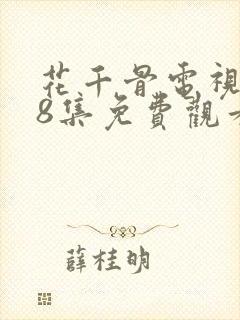 花千骨電視
8集免費觀看
薛桂明